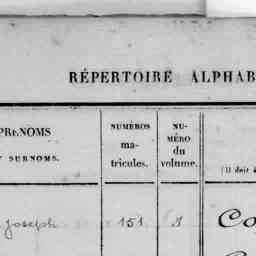 RÉPERTOIRE ALPHAB
PRÉNOMS
SURNOMS.
NUMÉROS
ma-
tricules.
NU-
MÉRO
du
volume.
(Il doit
Joseph 151 1 Co